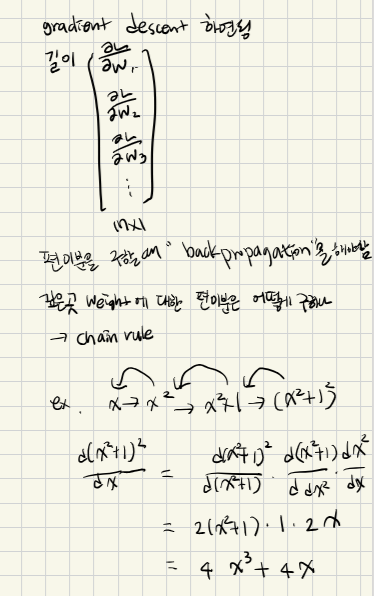 gradient descent 하면됨
길이
∂L/∂W₁
∂L/∂W₂
∂L/∂W₃
⋮
n×1
편미분을 구할 때 "backpropagation"을 해야함
깊은곳 weight에 대한 편미분은 어떻게 구하나
→ chain rule
ex. x → x² → x²+1 → (x²+1)²
d(x²+1)²/dx = d(x²+1)²/d(x²+1) · d(x²+1)/d dx² · dx²/dx
= 2(x²+1) · 1 · 2x
= 4 x³ + 4x